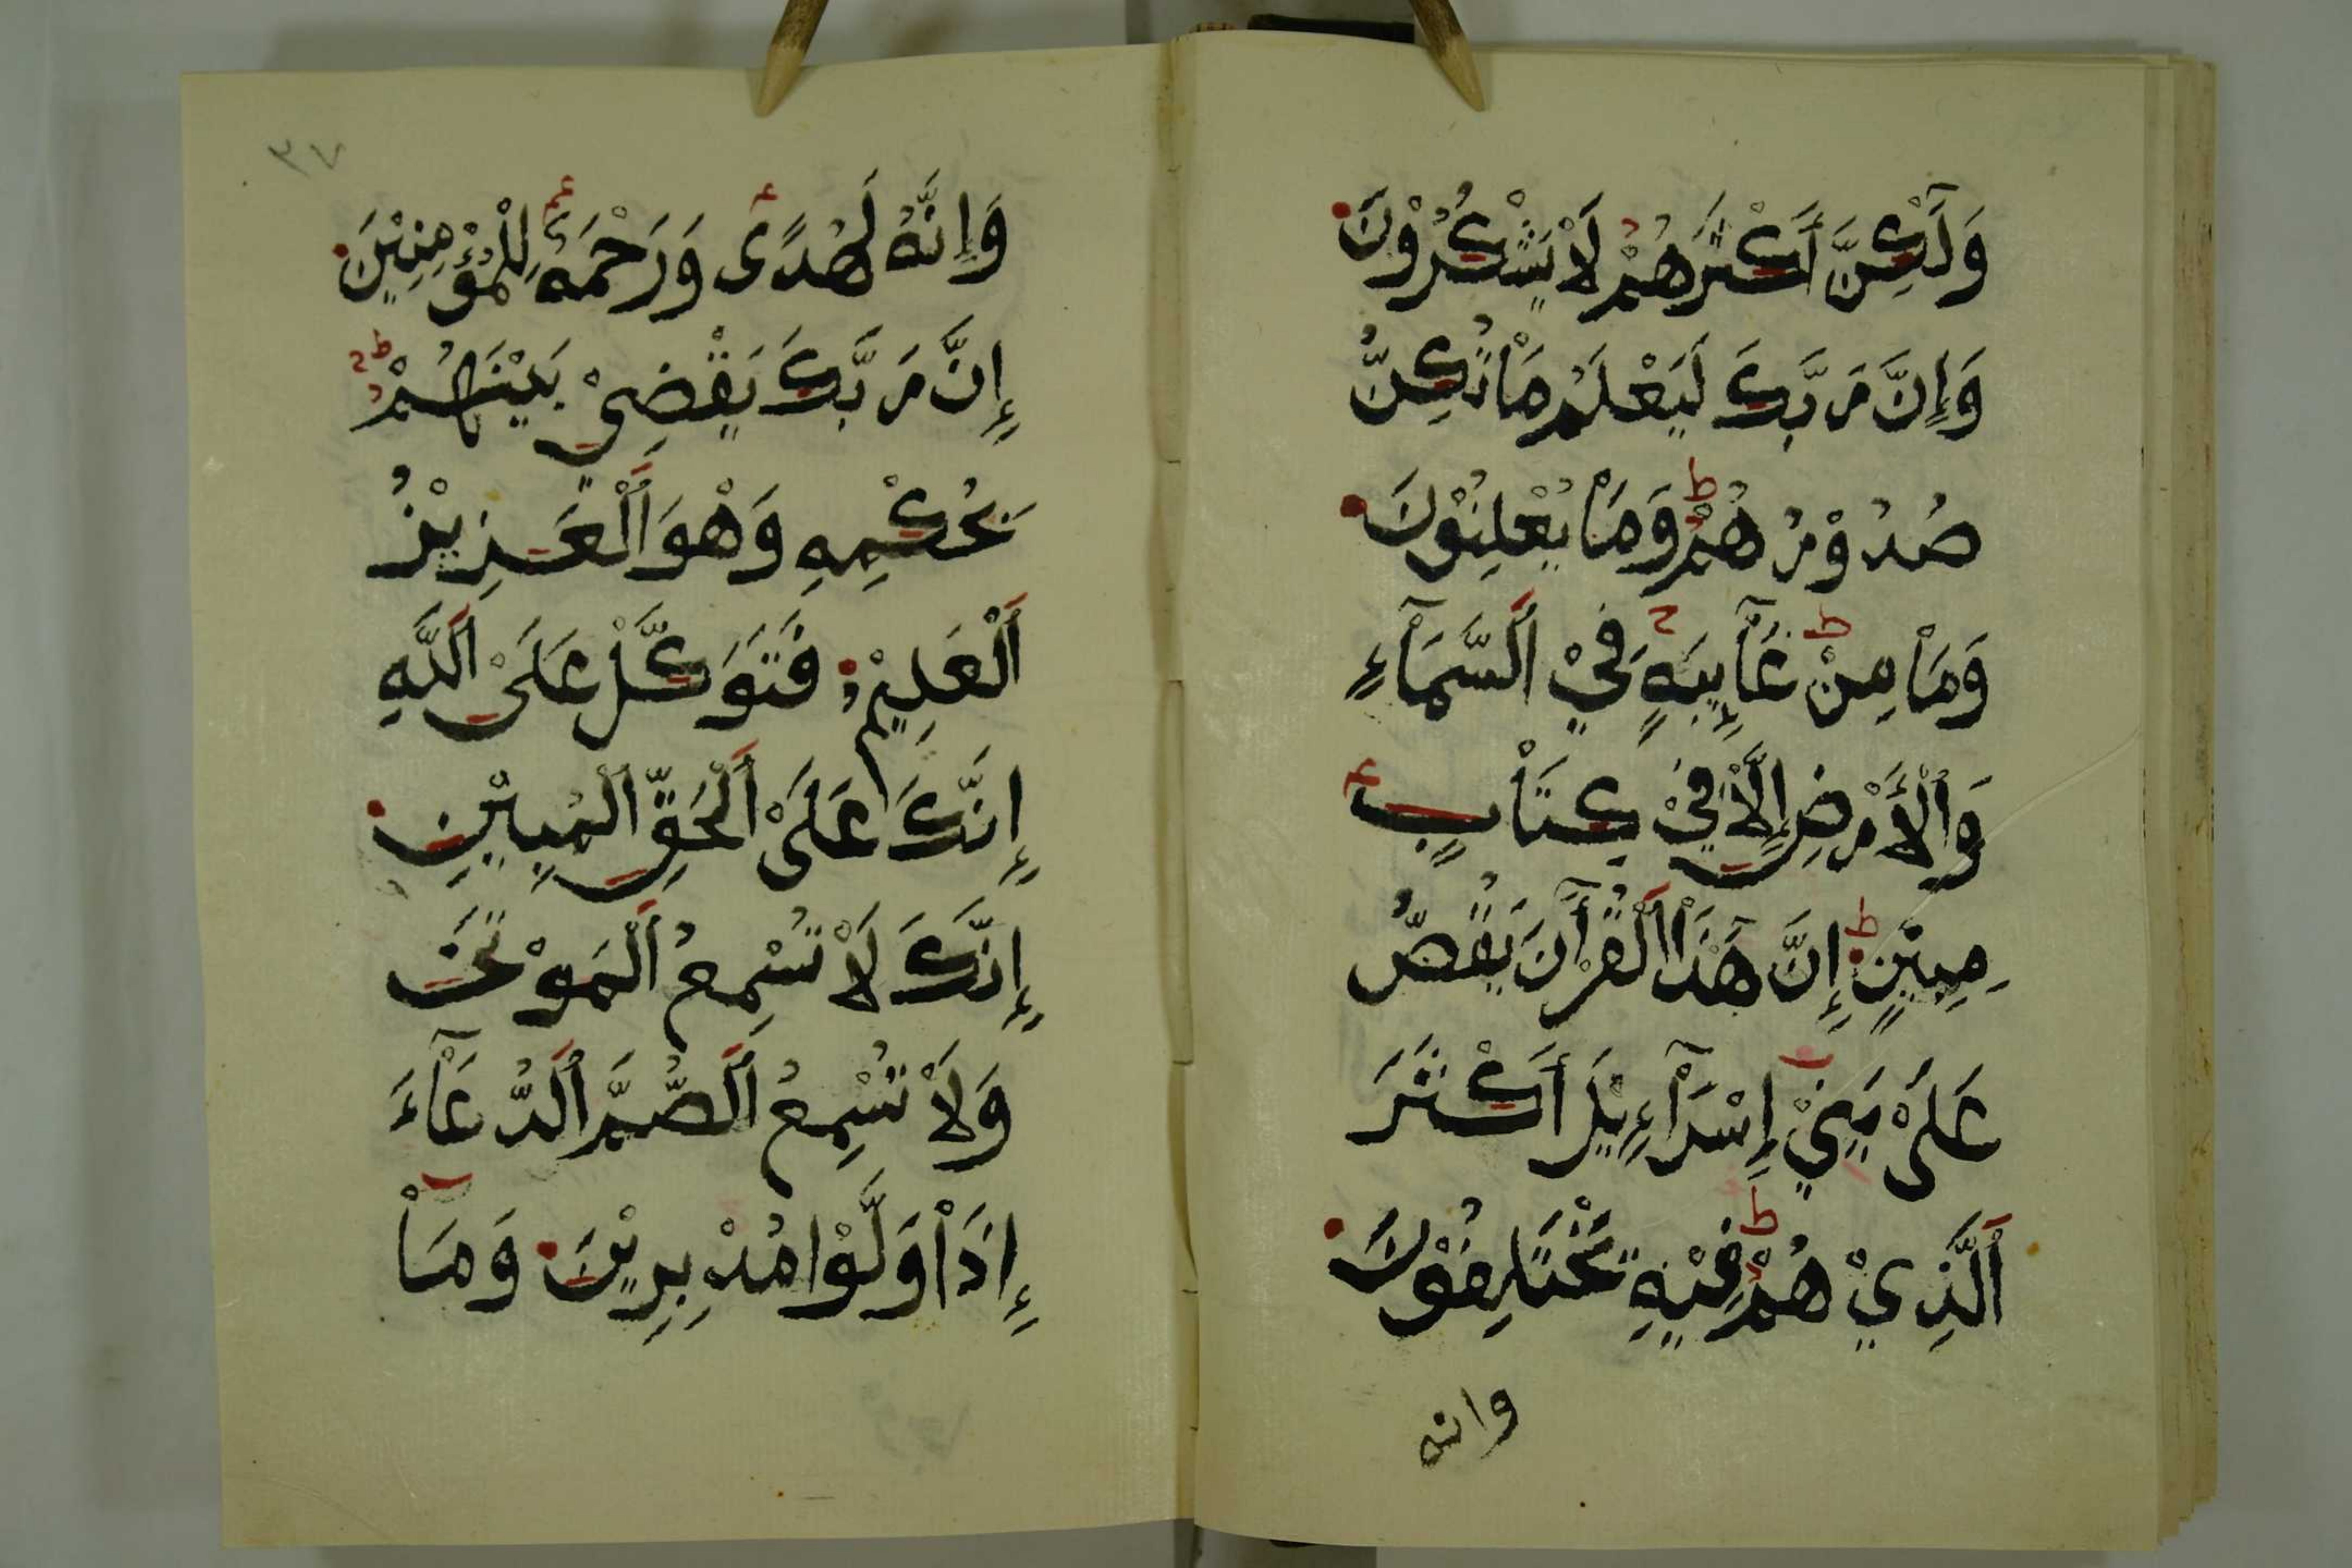 وَلَٰكِنَّ أَكْثَرَهُمْ لَاْ يَشْكُرُوْنَ
وَإِنَّ رَبَّكَ لَيَعْلَمُ مَاْ تُكِنُّ
صُدُوْرُهُمْ وَمَاْ يُعْلِنُوْنَ
وَمَاْ مِنْ غَآئِبَةٍ فِيْ ٱلسَّمَآءِ
وَٱلْأَرْضِ إِلَّاْ فِيْ كِتَاْبٍ
مُبِيْنٍ إِنَّ هَٰذَاْ ٱلْقُرْآنَ يَقُصُّ
عَلَىْ بَنِيْ إِسْرَآءِيْلَ أَكْثَرَ
ٱلَّذِيْ هُمْ فِيْهِ يَخْتَلِفُوْنَ
وانه
٣٧
وَإِنَّهُ لَهُدًى وَرَحْمَةٌ لِلْمُؤْمِنِيْنَ
إِنَّ رَبَّكَ يَقْضِيْ بَيْنَهُمْ
بِحُكْمِهِ وَهْوَ ٱلْعَزِيْزُ
ٱلْعَلِيْمُ فَتَوَكَّلْ عَلَىْ ٱللَّهِ
إِنَّكَ عَلَىْ ٱلْحَقِّ ٱلْمُبِيْنِ
إِنَّكَ لَاْ تُسْمِعُ ٱلْمَوْتَىْ
وَلَاْ تُسْمِعُ ٱلصُّمَّ ٱلدُّعَآءَ
إِذَاْ وَلَّوْا مُدْبِرِيْنَ وَمَآ